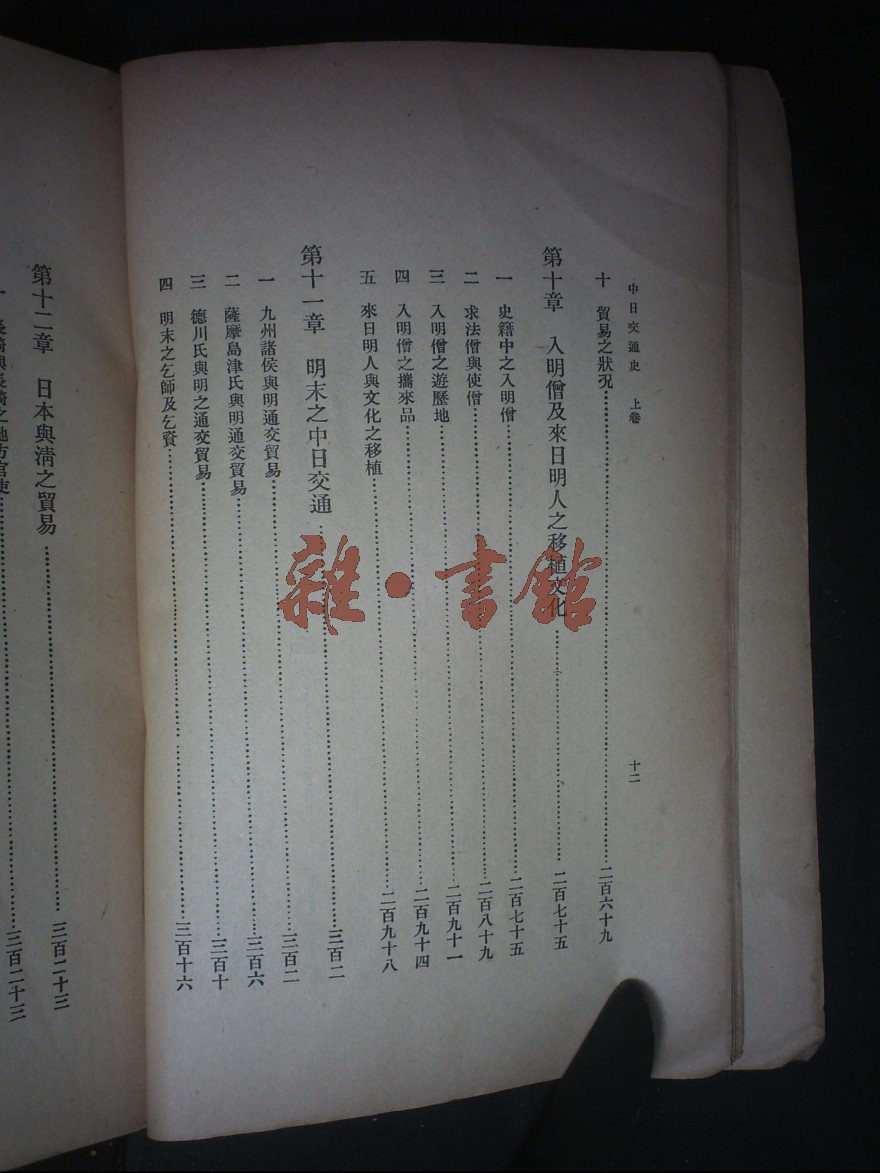 中日交通史 上卷 十二
十 貿易之狀況 二百六十九
第十章 入明僧及來日明人之移植文化 二百七十五
一 史籍中之入明僧 二百七十五
二 求法僧與使僧 二百八十九
三 入明僧之遊歷地 二百九十一
四 入明僧之攜來品 二百九十四
五 來日明人與文化之移植 二百九十八
第十一章 明末之中日交通 三百二
一 九州諸侯與明通交貿易 三百二
二 薩摩島津氏與明通交貿易 三百六
三 德川氏與明之通交貿易 三百十
四 明末之乞師及乞資 三百十六
第十二章 日本與淸之貿易 三百二十三
一 長崎與長崎之地方官吏 三百二十三
雜·書館